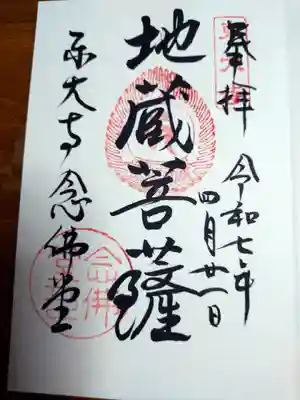 奉拝
令和七年
四月廿一日
地蔵菩薩
東大寺念佛堂
念佛